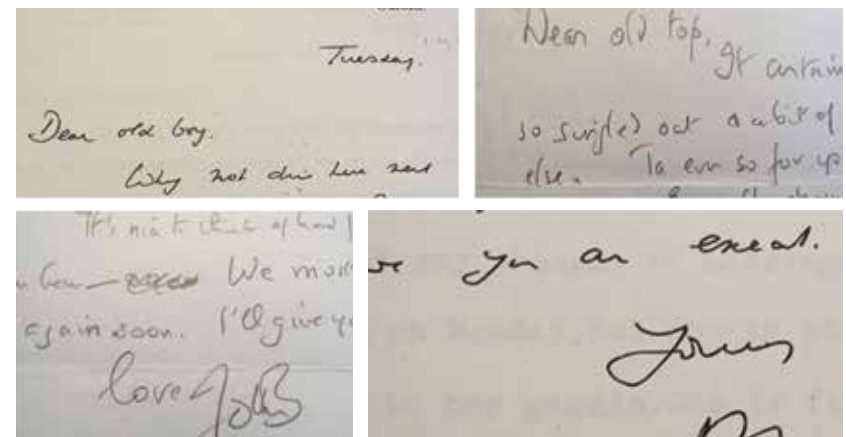 Tuesday.
Dear old boy.
Why not dine here next
Dear old top,
It certain
so singled out a bit of
else. Ta ever so for
It's nice to think of
We
again soon. I'll give y
love
you an exeat.
Yours